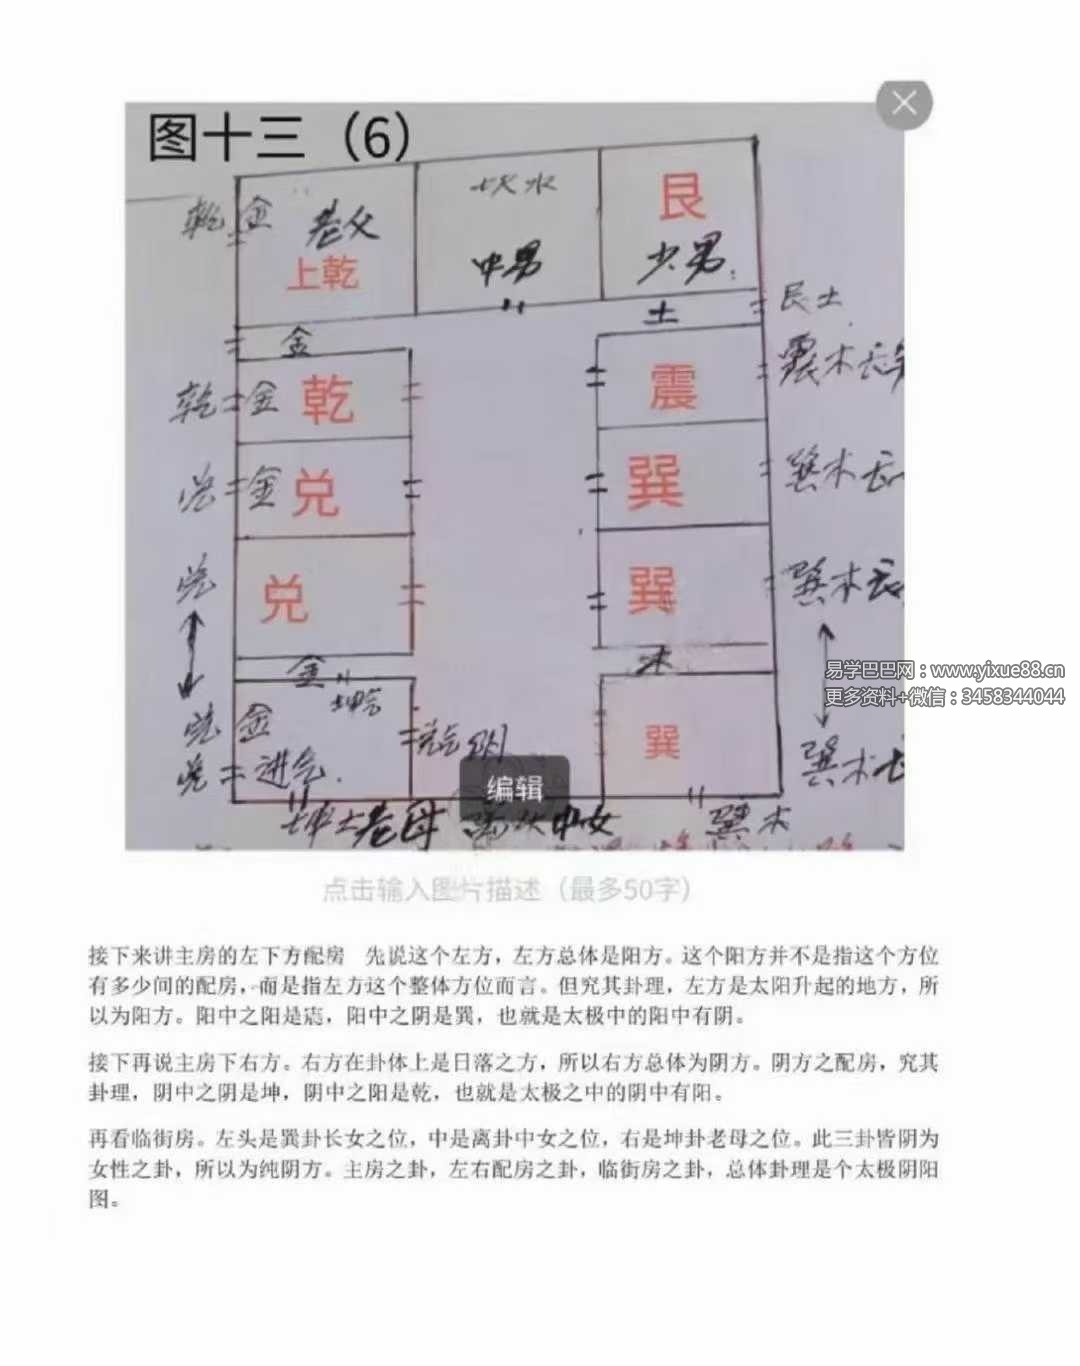 图十三（6）
坎水
艮
乾 金
老父
上乾
中男
少男
艮土
土
金
震木长
乾
震
乾 金
巽木长
兑 金
兑
巽
兑
兑
巽
巽木长
金
木
坤
兑 金
巽
巽木长
兑
进气
编辑
坤土老母
中女
巽木
易学巴巴网：www.yixue88.cn
更多资料+微信：3458344044
点击输入图片描述（最多50字）
接下来讲主房的左下方配房 先说这个左方，左方总体是阳方。这个阳方并不是指这个方位
有多少间的配房，而是指左方这个整体方位而言。但究其卦理，左方是太阳升起的地方，所
以为阳方。阳中之阳是，阳中之阴是巽，也就是太极中的阳中有阴。
接下再说主房下右方。右方在卦体上是日落之方，所以右方总体为阴方。阴方之配房，究其
卦理，阴中之阴是坤，阴中之阳是乾，也就是太极之中的阴中有阳。
再看临街房。左头是巽卦长女之位，中是离卦中女之位，右是坤卦老母之位。此三卦皆阴为
女性之卦，所以为纯阴方。主房之卦，左右配房之卦，临街房之卦，总体卦理是个太极阴阳
图。